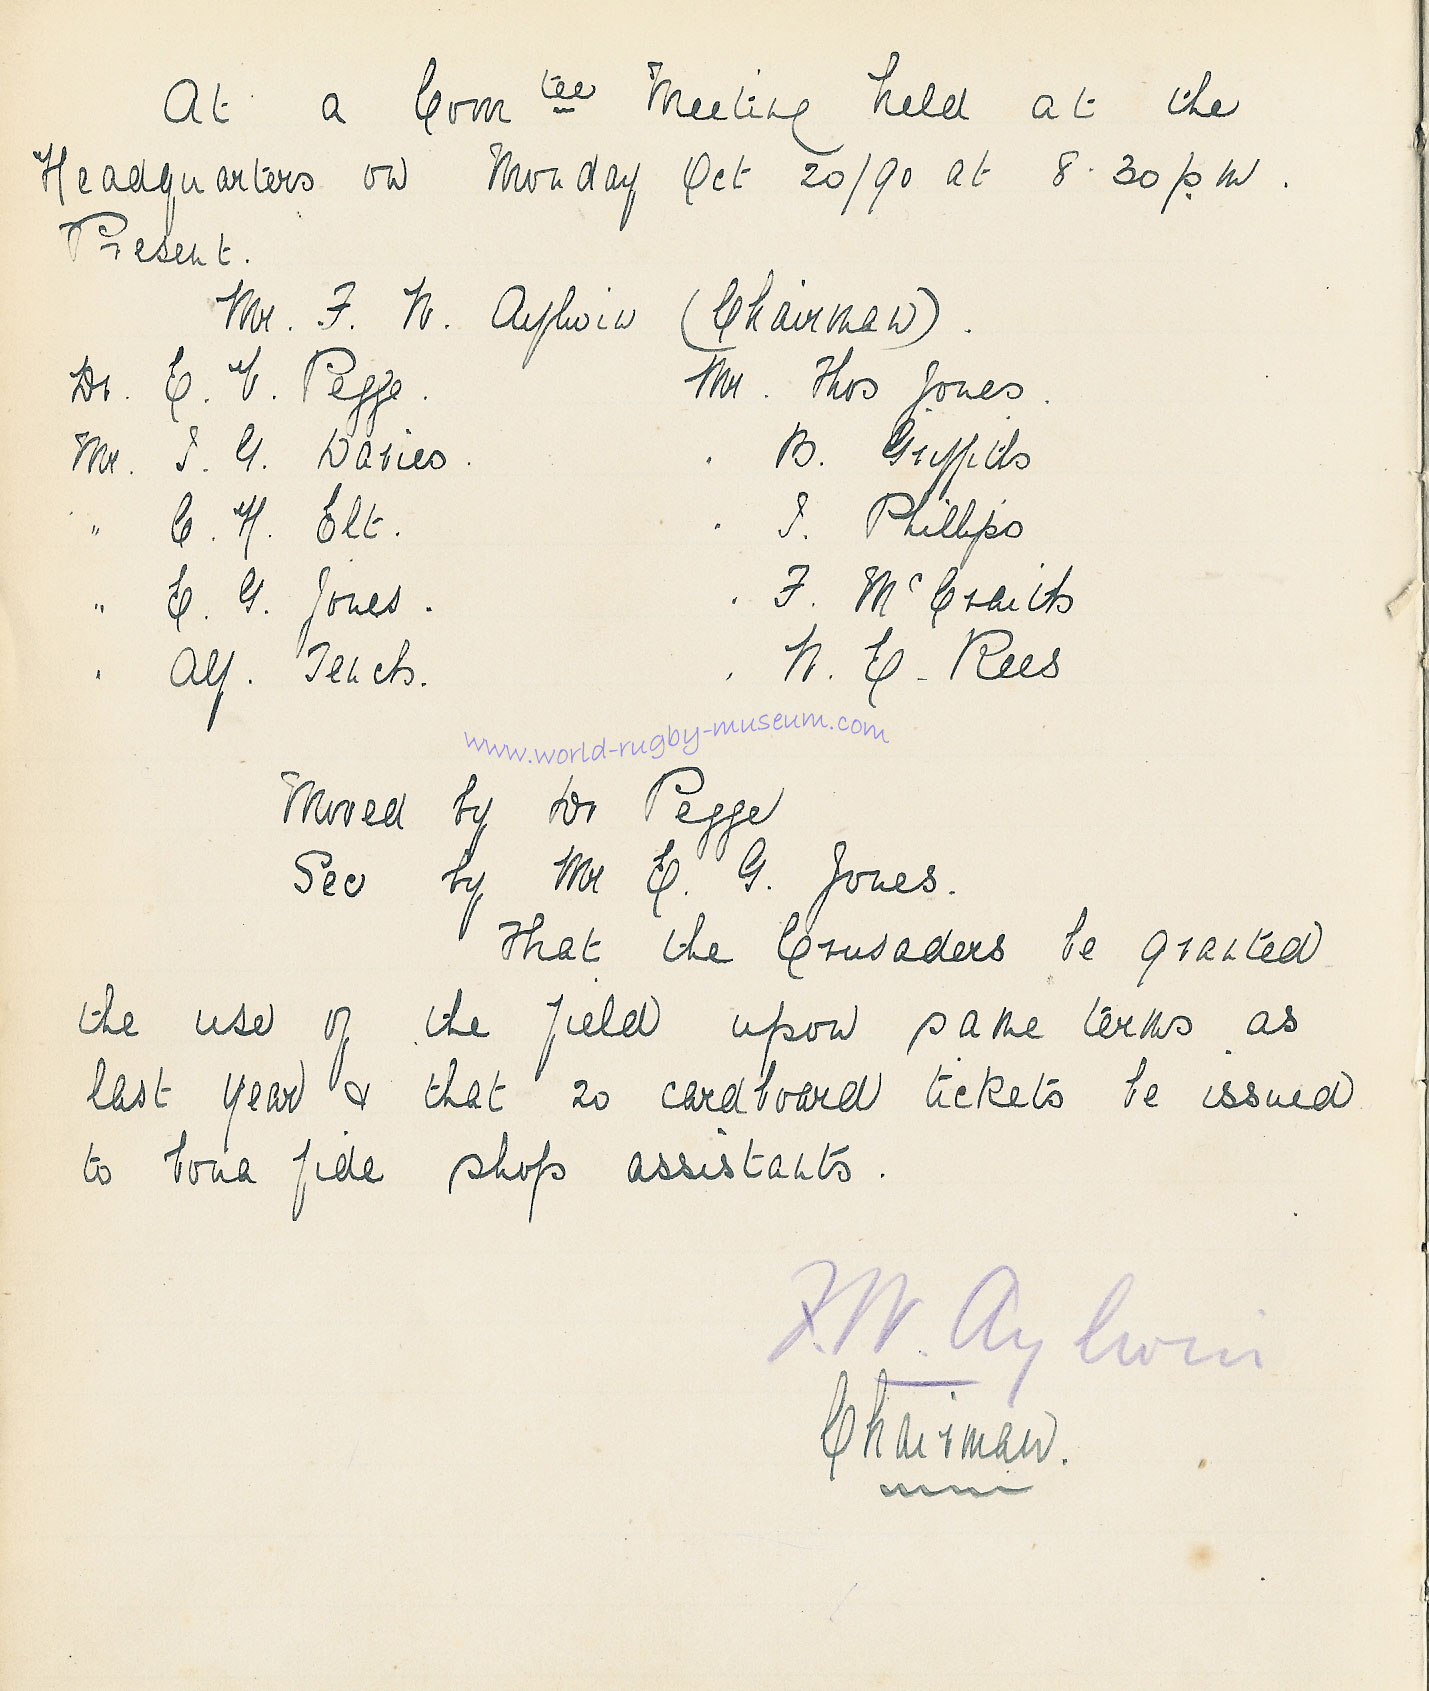 At a Comtee Meeting held at the
Headquarters on Monday Oct 20/90 at 8.30 p.m.
Present.
Mr. F. W. Aylwin (Chairman).
Dr. E. V. Pegge. Mr. Thos Jones.
Mr. J. G. Davies. " B. Griffiths
" C. H. Elt. " J. Phillips
" E. G. Jones. " F. McCraith
" Alf. Tench. " W. E. Rees
www.world-rugby-museum.com
Moved by Dr Pegge
Sec by Mr E. G. Jones.
That the Crusaders be granted
the use of the field upon same terms as
last year & that 20 cardboard tickets be issued
to bona fide shop assistants.
F. W. Aylwin
Chairman.